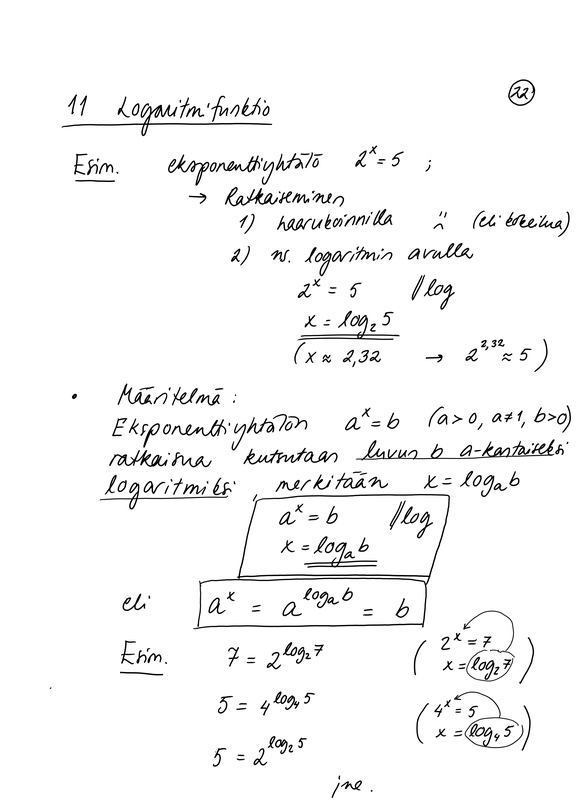 22
11 Logaritmifunktio
Esim. eksponenttiyhtälö 2^x = 5 ;
→ Ratkaiseminen
1) haarukoinnilla (eli kokeilua)
2) ns. logaritmin avulla
2^x = 5 //log
x = log₂5
(x ≈ 2,32 → 2^2,32 ≈ 5)
• Määritelmä :
Eksponenttiyhtälön a^x = b (a>0, a≠1, b>0)
ratkaisua kutsutaan luvun b a-kantaiseksi
logaritmiksi, merkitään x = logₐb
a^x = b //log
x = logₐb
eli a^x = a^logₐb = b
Esim. 7 = 2^log₂7 (2^x = 7
x = log₂7)
5 = 4^log₄5 (4^x = 5
x = log₄5)
5 = 2^log₂5
jne.